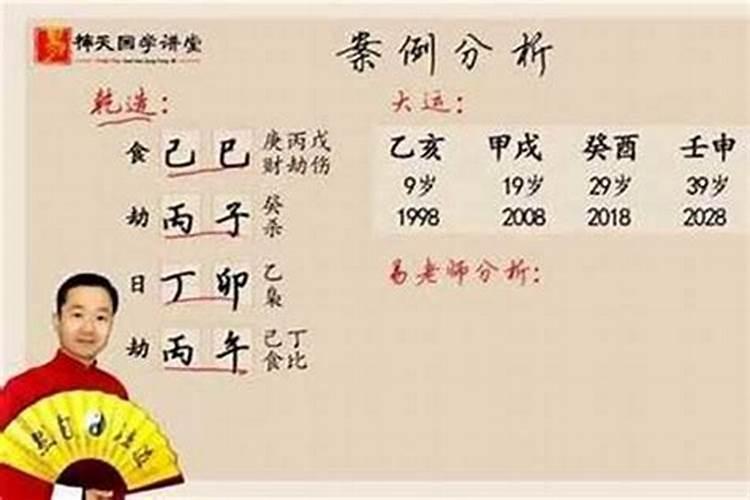 易
神天国学讲堂
案例分析
乾造：
食 己 巳 庚丙戊
财劫伤
劫 丙 子 癸
杀
日 丁 卯 乙
枭
劫 丙 午 己丁
食比
大运：
乙亥 甲戌 癸酉 壬申
9岁 19岁 29岁 39岁
1998 2008 2018 2028
易老师分析：